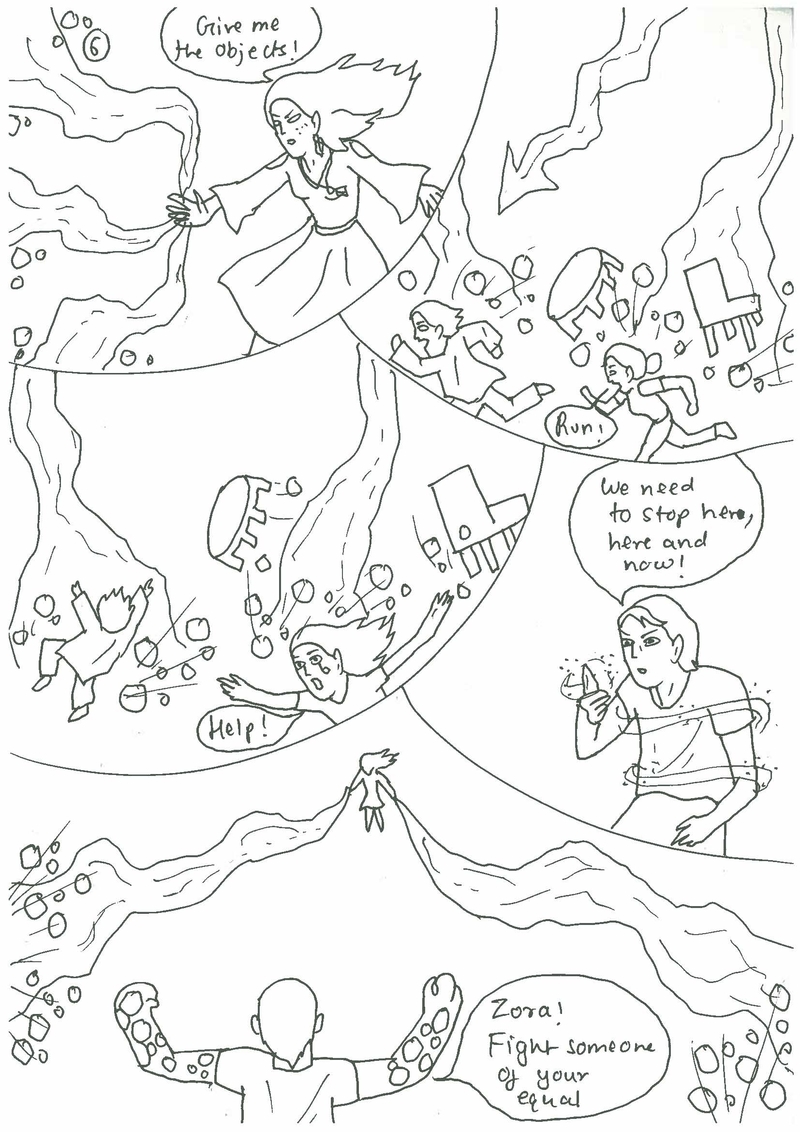 6
Give me
the objects!
Run!
We need
to stop here,
here and
now!
Help!
Zora!
Fight someone
of your
equal